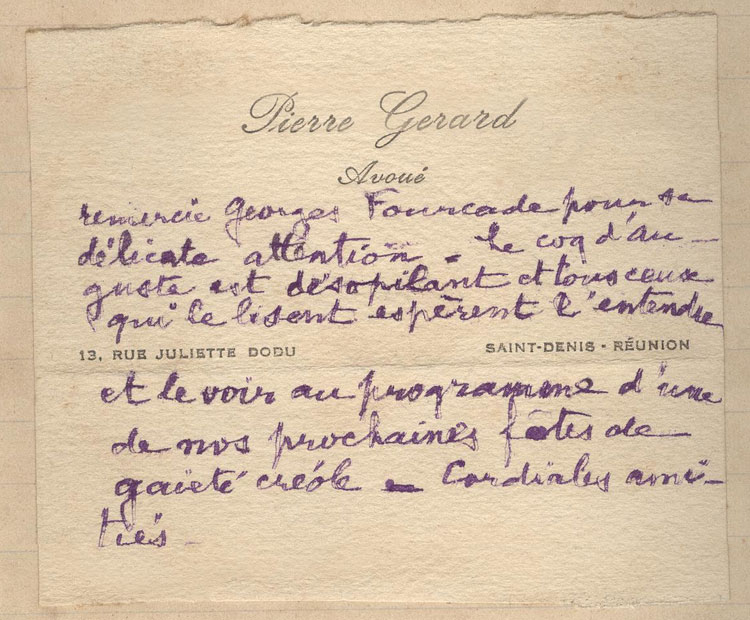 Pierre Gerard
Avoué
remercie Georges Fourcade pour sa
délicate attention - le coq d'au-
guste est désopilant et tous ceux
qui le lisent espèrent l'entendre
13, RUE JULIETTE DODU SAINT-DENIS - RÉUNION
et le voir au programme d'une
de nos prochaines fêtes de
gaieté créole - Cordiales ami-
tiés -